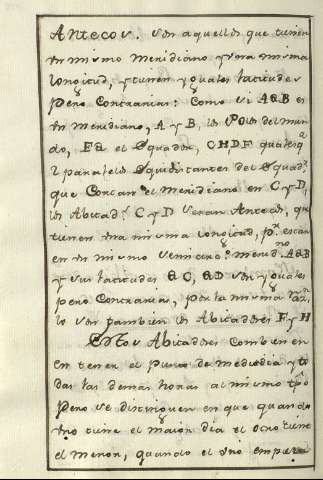 Antecos. Son aquellos que tienen
un mismo Meridiano y una misma
longitud, y tienen yguales latitudes
pero Contrarias: Como si AQB es
un meridiano, A y B, los Polos del mun
do, EQ el Equador, CHDF qualesq.ª
2 paralelos Equidistantes del Equad.r
que Cortan el Meridiano en C y D,
los Abitad.s C y D seran Antecos, que
tienen una misma longitud, p.r estar
en un mismo semicirc.º merid.no AQB
y sus latitudes QC, QD son yguales
pero Contrarias, por la misma raz.n
lo son tambien los Abitadores F y H
Estos Abitadores Combienen
en tener el punto de mediodia y to
das las demas horas al mismo tpo
Pero se distinguen en que quando
uno tiene el maior dia el otro tiene
el menor, quando el uno empieza